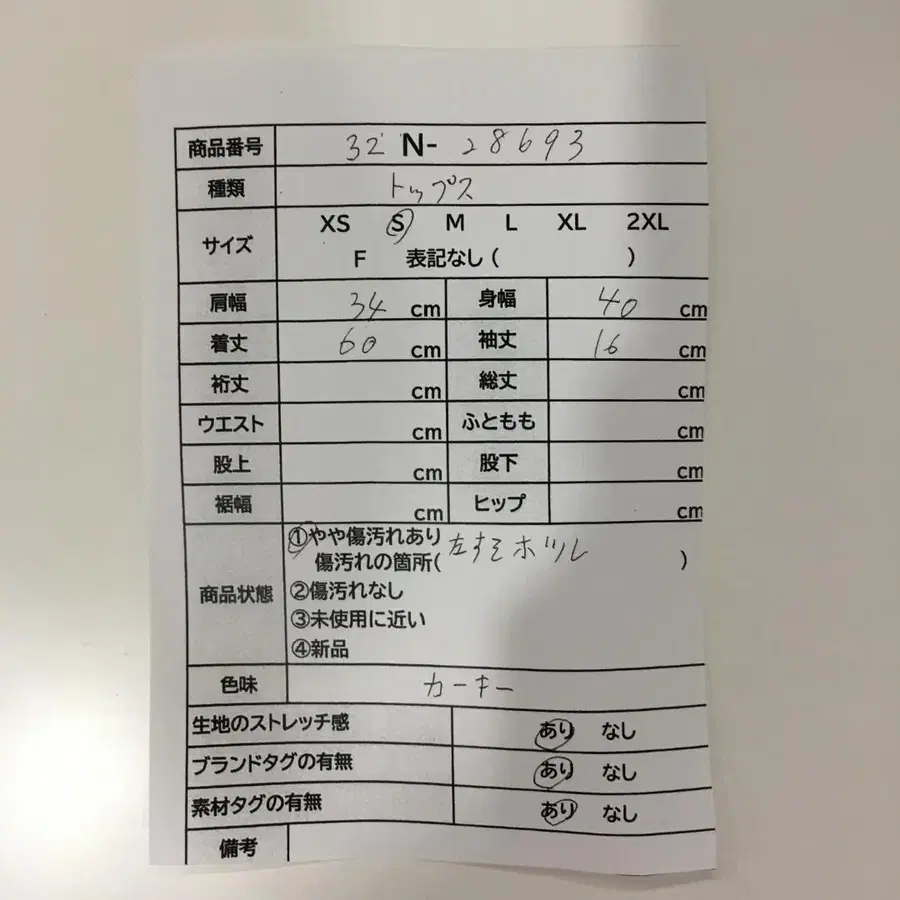 商品番号 32 N- 28693
種類 トップス
サイズ XS S M L XL 2XL
F 表記なし ( )
肩幅 34 cm 身幅 40 cm
着丈 60 cm 袖丈 16 cm
裄丈 cm 総丈 cm
ウエスト cm ふともも cm
股上 cm 股下 cm
裾幅 cm ヒップ cm
商品状態 ①やや傷汚れあり
傷汚れの箇所( 左すそホツレ )
②傷汚れなし
③未使用に近い
④新品
色味 カーキー
生地のストレッチ感 あり なし
ブランドタグの有無 あり なし
素材タグの有無 あり なし
備考